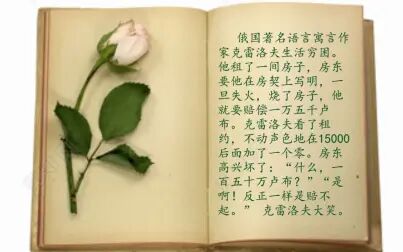 俄国著名语言寓言作
家克雷洛夫生活穷困。
他租了一间房子，房东
要他在房契上写明，一
旦失火，烧了房子，他
就要赔偿一万五千卢
布。克雷洛夫看了租
约，不动声色地在15000
后面加了一个零。房东
高兴坏了：“什么，一
百五十万卢布？”“是
啊！反正一样是赔不
起。” 克雷洛夫大笑。